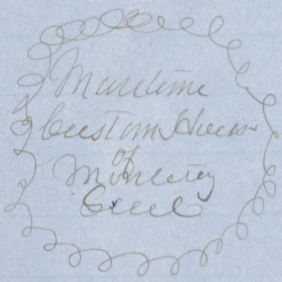 Maritime
Custom House
of
Monterey
Seal